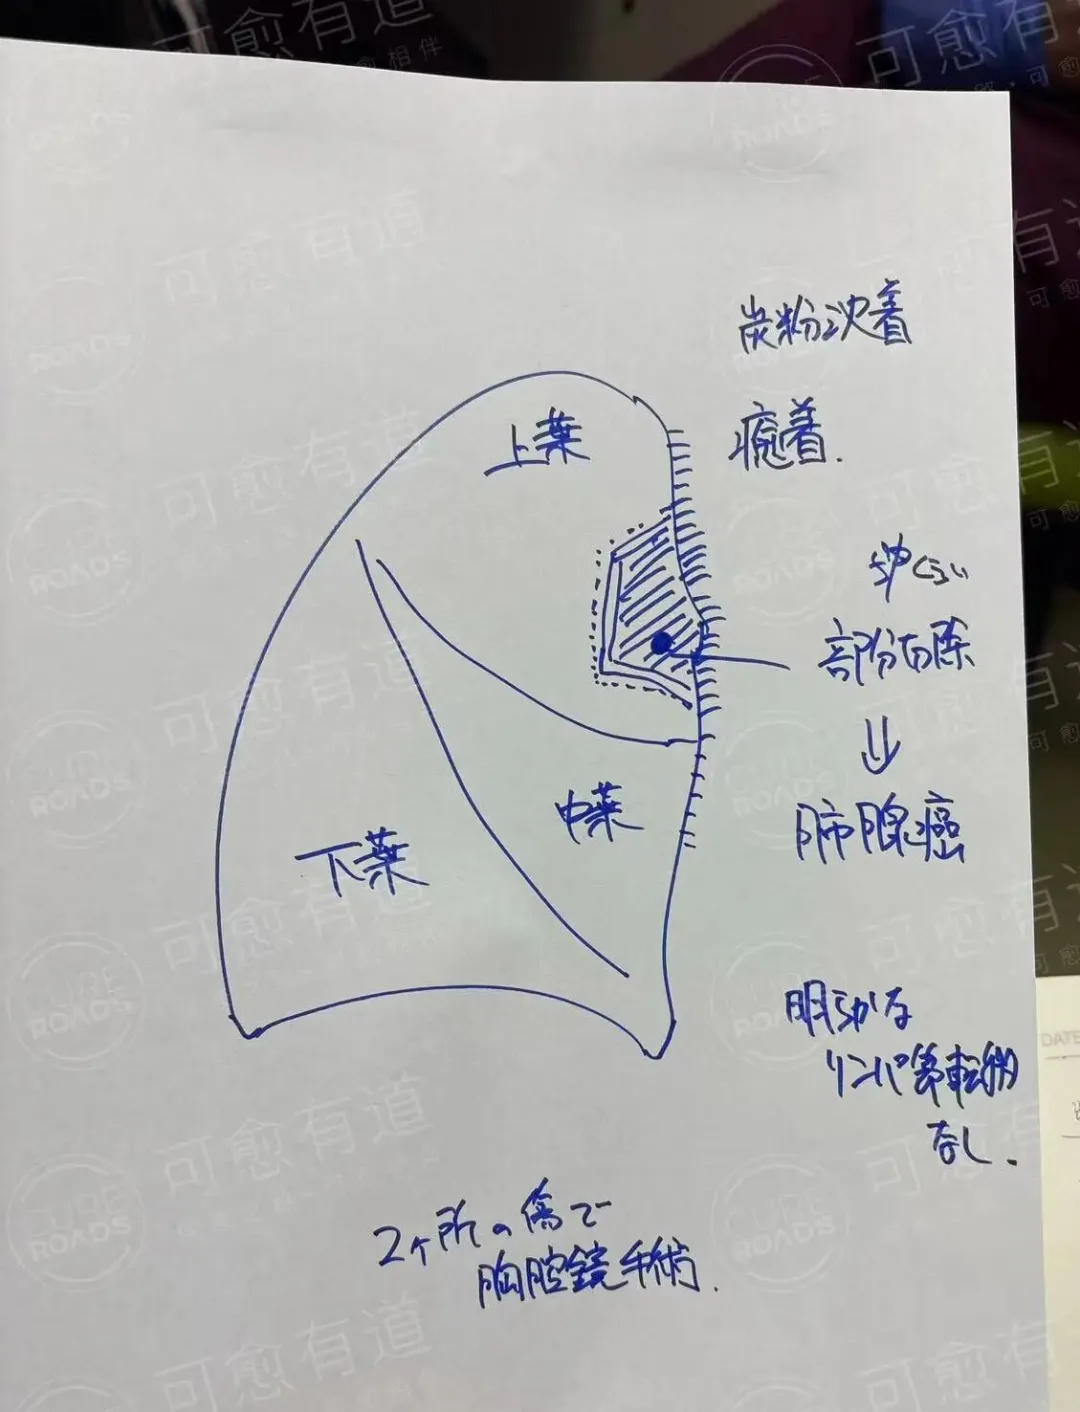 炭粉沈着
癒着.
上葉
くらい
部分切除
⇓
中葉
肺腺癌
下葉
明らかな
リンパ節転移
なし.
2ヶ所の傷で
胸腔鏡手術.
可愈有道
CURE ROADS
DATE